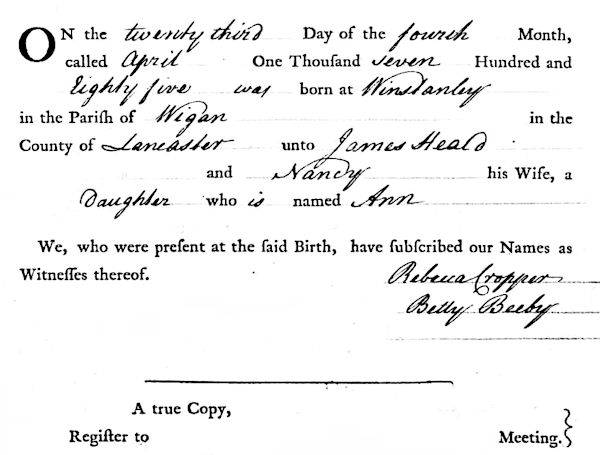 ON the twenty third Day of the fourth Month,
called April One Thouſand seven Hundred and
Eighty five was born at Winstanley
in the Pariſh of Wigan in the
County of Lancaster unto James Heald
and Nancy his Wife, a
Daughter who is named Ann
We, who were preſent at the ſaid Birth, have ſubſcribed our Names as
Witneſſes thereof.
Rebecca Cropper
Betty Beeby
A true Copy,
Regiſter to Meeting.